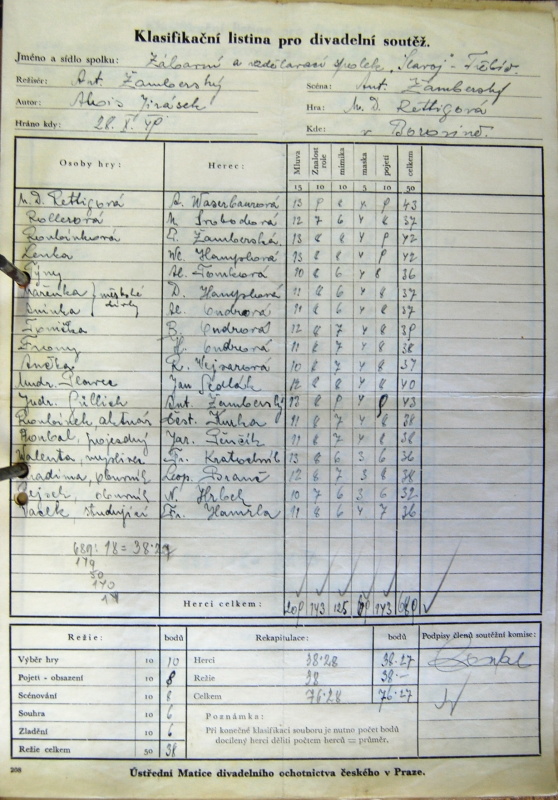 Klasifikační listina pro divadelní soutěž.
Jméno a sídlo spolku: Zábavní a vzdělávací spolek „Svaroj" - Třebíč.
Režisér: Ant. Žamberský
Scéna: Ant. Žamberský
Autor: Alois Jirásek
Hra: M. D. Rettigová
Hráno kdy: 28. X. 49
Kde: v Borovině.
Osoby hry: Herec: Mluva Znalost role mimika maska pojetí celkem
15 10 10 5 10 50
M. D. Rettigová 13 43
Rollerová M. Svobodová 12 7 6 4 8 37
Roubínková Žamberská 13 8 8 4 9 42
Lenka 13 8 8 4 9 42
Týny Tomková 10 8 6 4 8 36
Mařenka } městské dívky D. 11 8 6 4 8 37
Aninka Ondrová 11 8 6 4 8 37
Tomička B. Ondrová 12 8 7 4 8 39
H. Ondrová 11 8 7 4 8 38
Anička R. Vejvarová 10 8 7 4 8 37
Mudr. Jan Sedlák 12 8 8 4 8 40
Judr. Pillich Ant. Žamberský 13 8 9 4 9 43
Roubínek, aktuár 11 8 7 4 8 38
Roubal, pojezdný Jar. 11 8 7 4 8 38
Valenta, myslivec Fr. Kratochvíl 13 8 6 3 6 36
Vradima, obecník Leop. 12 8 7 3 8 38
obecník N. Hrboch 10 7 6 3 6 32
Vacek, studující Fr. Hamrla 11 8 6 4 7 36
689 : 18 = 38·27
149
50
140
Herci celkem: 209 143 125 69 143 689
Režie: bodů Rekapitulace: bodů Podpisy členů soutěžní komise:
Výběr hry 10 10 Herci 38·28 38·27
Pojetí - obsazení 10 8 Režie 38 38·—
Scénování 10 8 Celkem 76·28 76·27
Souhra 10 6
Poznámka:
Zladění 10 6
Při konečné klasifikaci souboru je nutno počet bodů
Režie celkem 50 38
docílený herci děliti počtem herců = průměr.
208
Ústřední Matice divadelního ochotnictva českého v Praze.